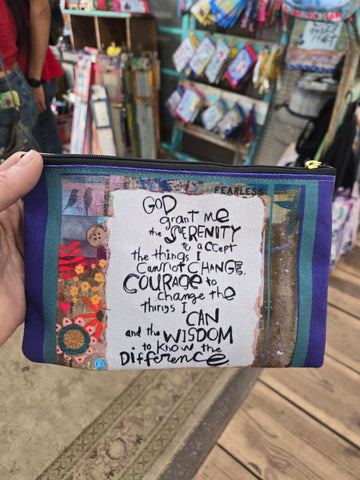 FEARLESS
GOD
grant me
the SERENITY
to accept
the things I
CANNOT CHANGE,
COURAGE to
change the
things I
CAN
and the WISDOM
to know the
Difference